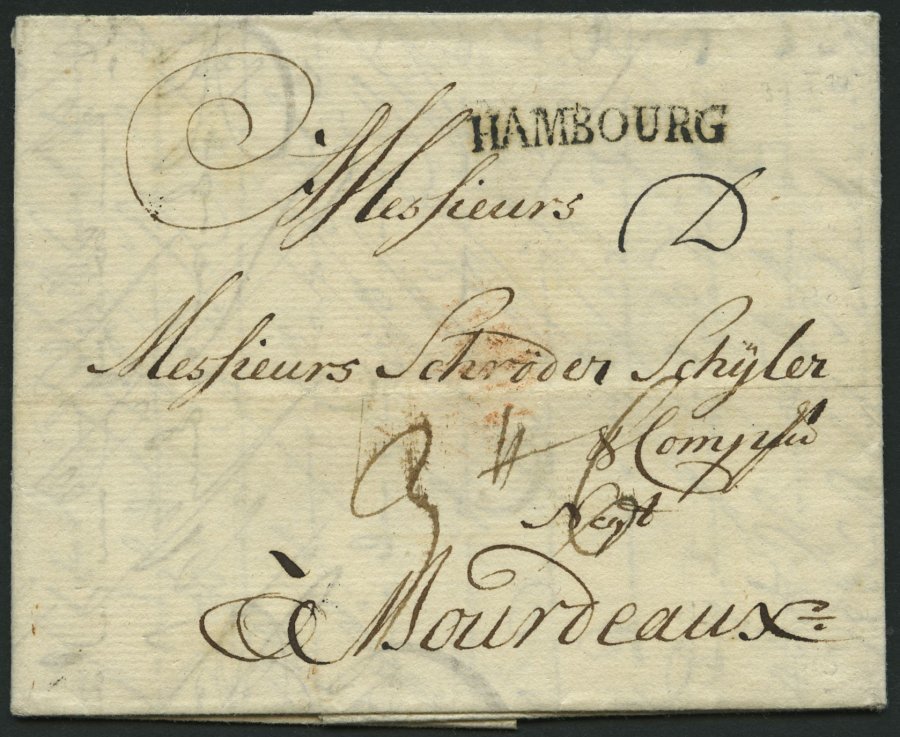 HAMBOURG
Messieurs D
Messieurs Schröder Schÿler
& Comp
Negt
à Bourdeaux